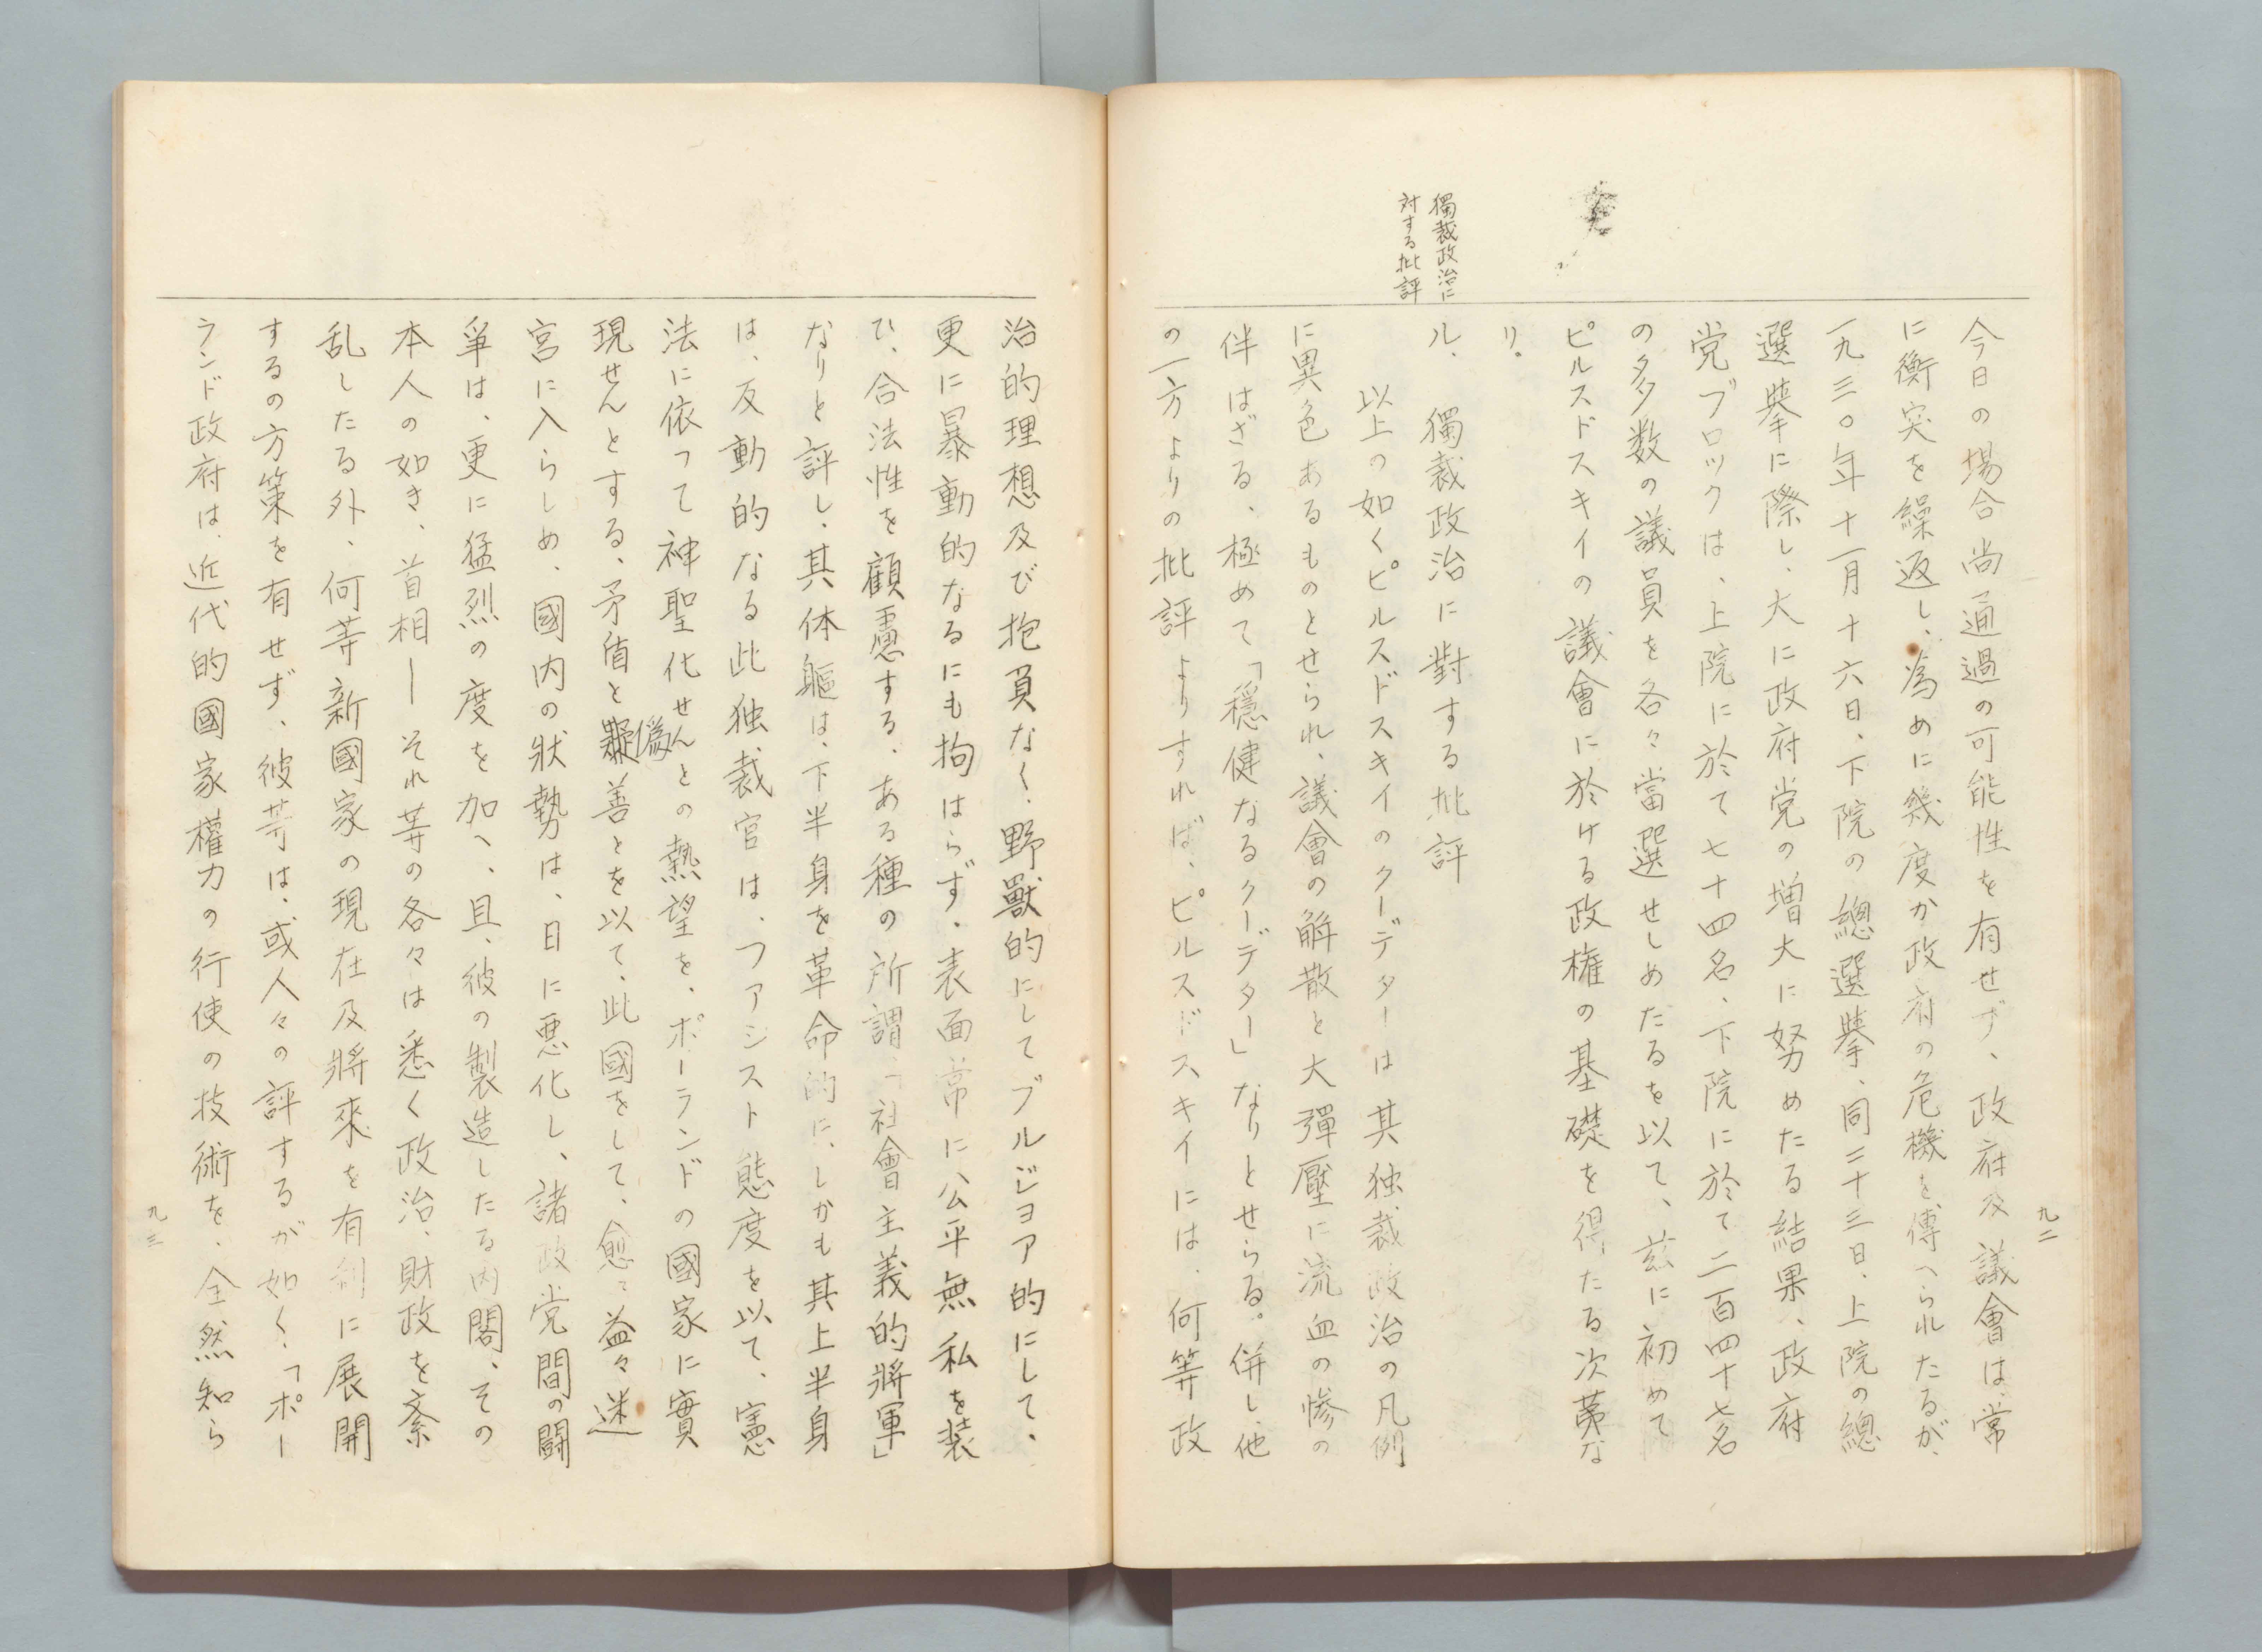 九二
今日の場合尚通過の可能性を有せず、政府及議會は、常
に衝突を繰返し、為めに幾度か政府の危機を、傳へられたるが、
一九三〇年十一月十六日、下院の總選挙、同二十三日、上院の總
選挙に際し、大に政府党の増大に努めたる結果、政府
党ブロックは、上院に於て七十四名、下院に於て二百四十七名
の多数の議員を各々當選せしめたるを以て、茲に初めて
ピルスドスキイの議會に於ける政権の基礎を得たる次第な
り。
獨裁政治に
対する批評
ル、獨裁政治に對する批評
以上の如くピルスドスキイのクーデターは其独裁政治の凡例
に異色あるものとせられ、議會の解散と大彈壓に流血の惨の
伴はざる、極めて「穏健なるクーデター」なりとせらる。併し他
の一方よりの批評よりすれば、ピルスドスキイには、何等政
治的理想及び抱負なく、野獸的にしてブルジョア的にして、
更に暴動的なるにも拘はらず、表面常に公平無私を装
ひ、合法性を顧慮する、ある種の所謂「社會主義的將軍」
なりと評し、其体軀は、下半身を革命的に、しかも其上半身
は、反動的なる此独裁官は、ファシスト態度を以て、憲
法に依って神聖化せんとの熱望を、ポーランドの國家に實
現せんとする、矛盾と偽善とを以て、此國をして、愈々益々迷
宮に入らしめ、國内の狀勢は、日に悪化し、諸政党間の闘
爭は、更に猛烈の度を加へ、且、彼の製造したる内閣、その
本人の如き、首相ーそれ等の各々は悉く政治、財政を紊
乱したる外、何等新國家の現在及將來を有利に展開
するの方策を有せず、彼等は、或人々の評するが如く、「ポー
ランド政府は、近代的國家權力の行使の技術を、全然知ら
九三